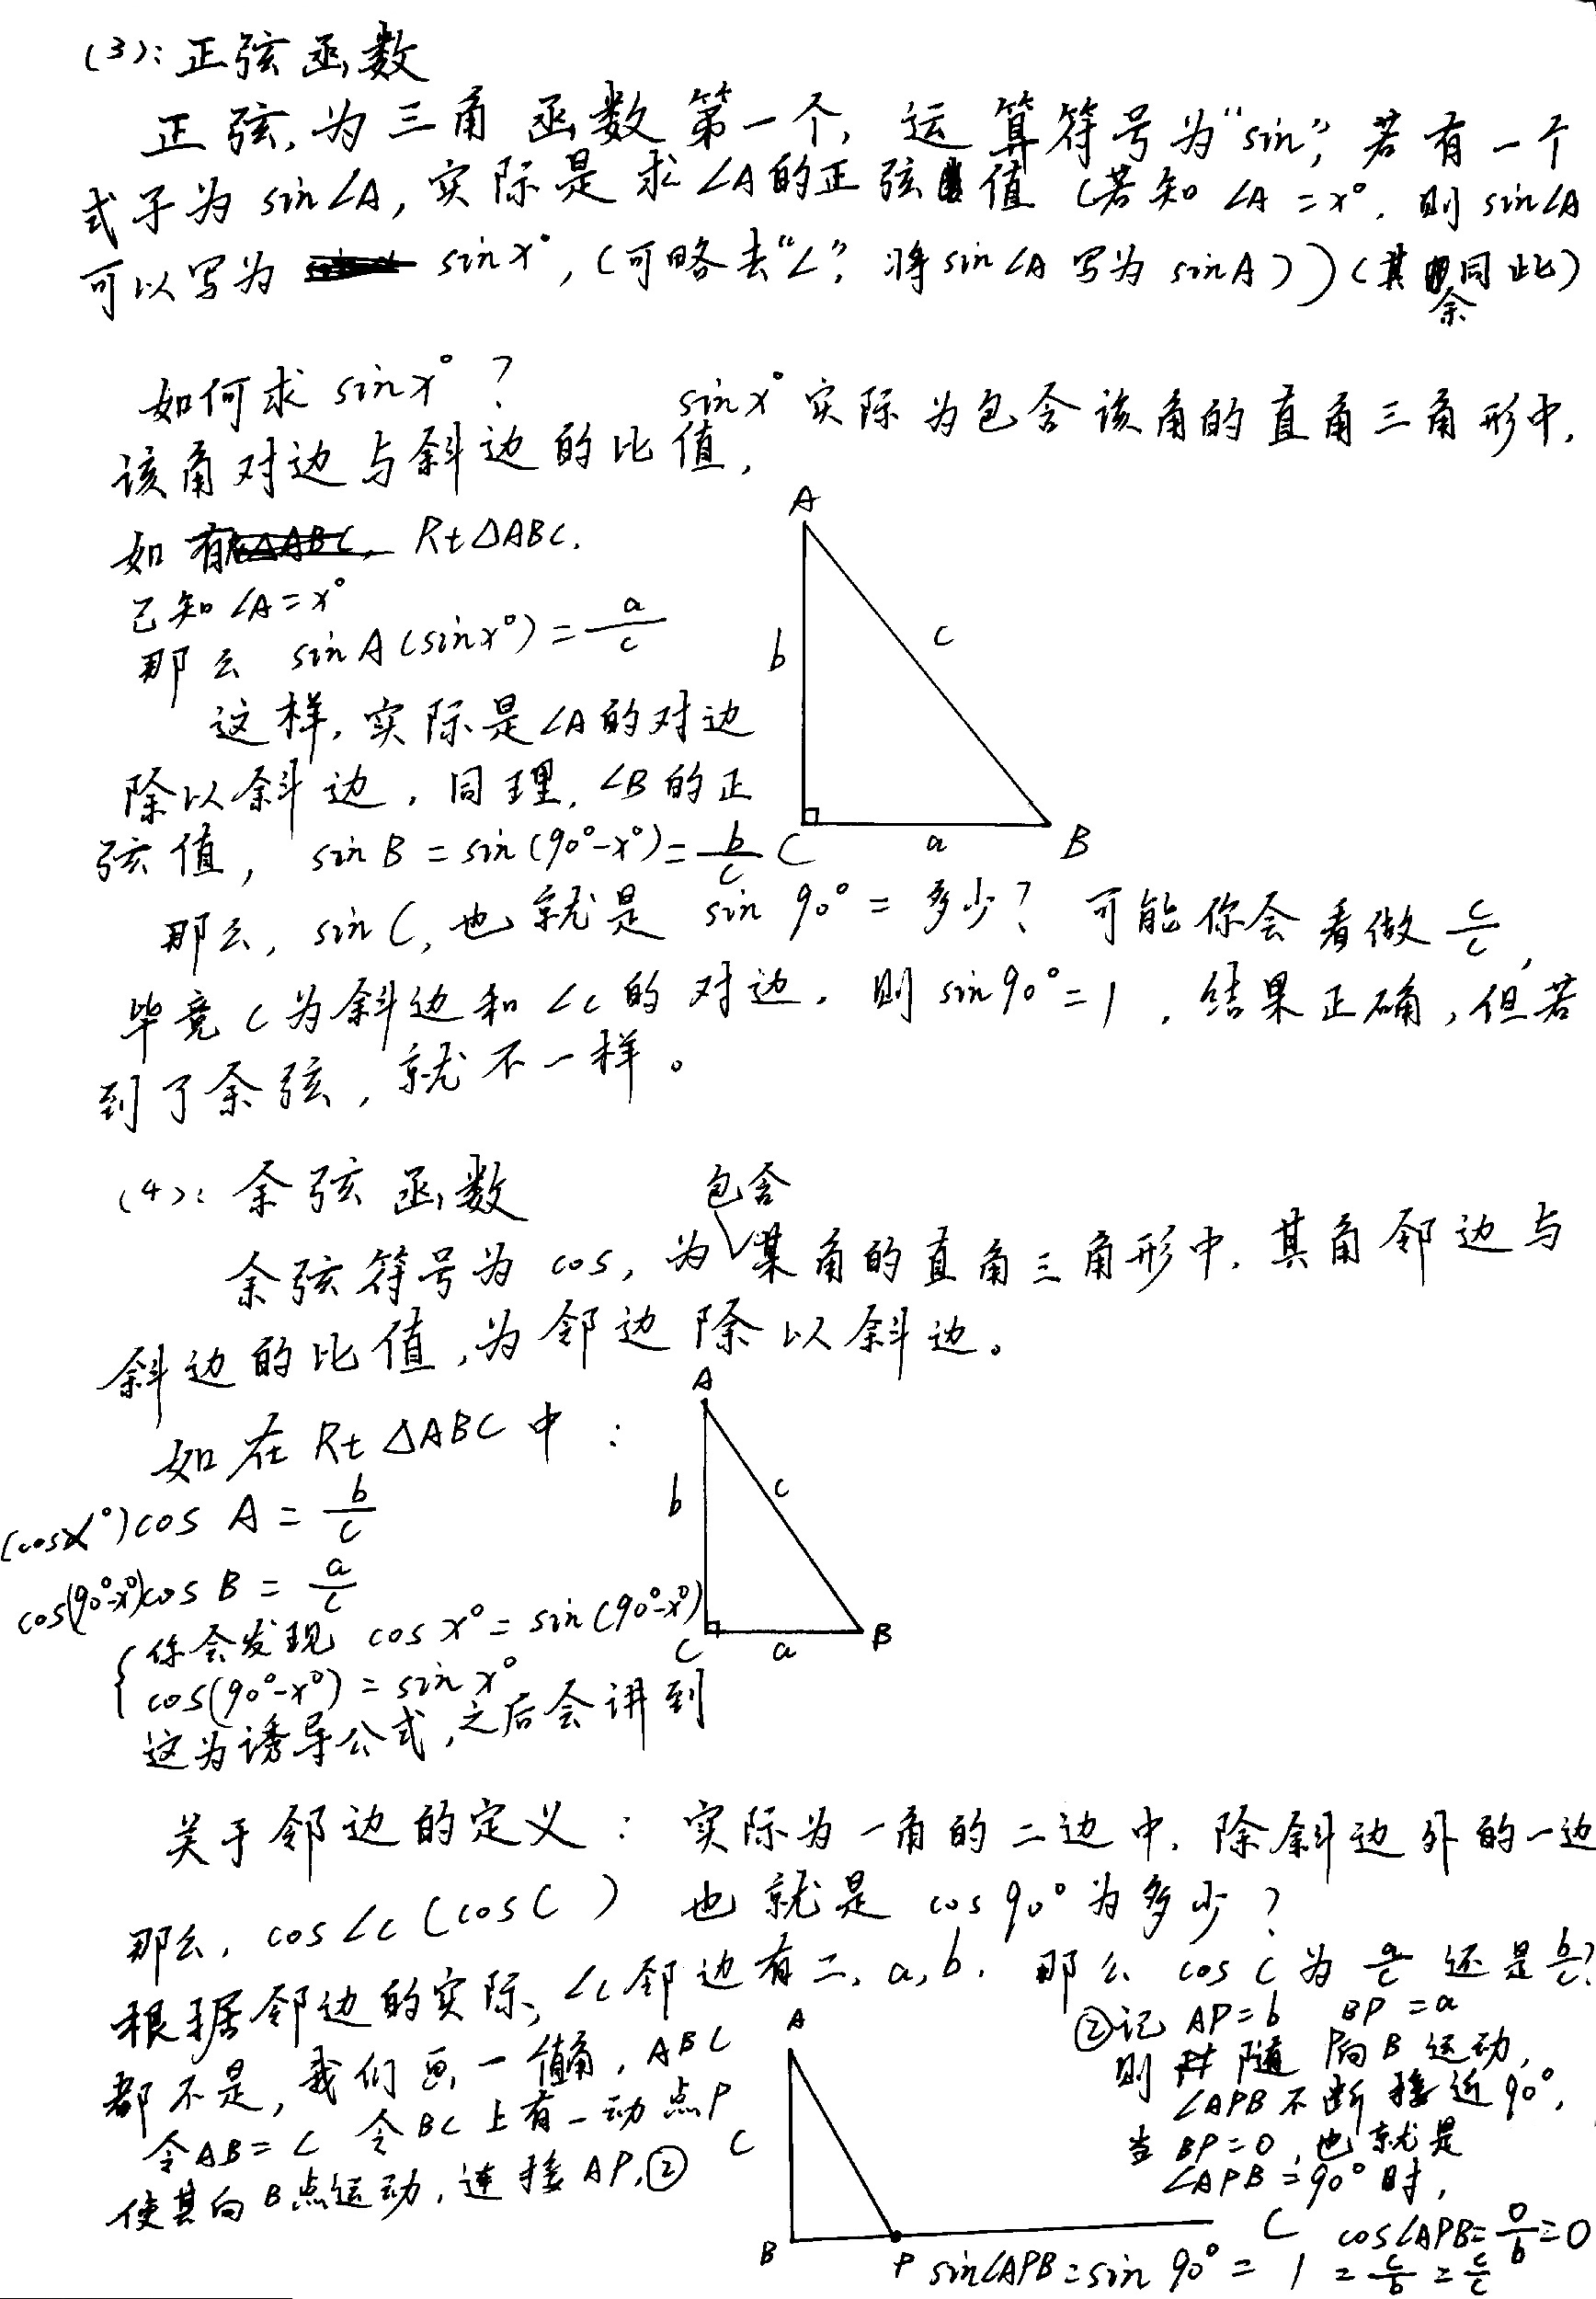 (3): 正弦函数
正弦,为三角函数第一个,运算符号为“sin”,若有一个
式子为 sin∠A,实际是求∠A的正弦值(若知∠A=x°,则sin∠A
可以写为 sinx°,(可略去“∠”,将sin∠A写为sinA))(其余同此)
如何求sinx°? sinx°实际为包含该角的直角三角形中,
该角对边与斜边的比值,
如有 Rt△ABC.
已知∠A=x°
那么 sinA(sinx°)=a/c
这样,实际是∠A的对边
除以斜边,同理,∠B的正
弦值,sinB=sin(90°-x°)=b/c
A
b
c
C
a
B
那么,sinC,也就是 sin90°=多少?可能你会看做c/c,
毕竟c为斜边和∠C的对边.则sin90°=1,结果正确,但若
到了余弦,就不一样。
(4): 余弦函数
包含
余弦符号为cos,为某角的直角三角形中.其角邻边与
斜边的比值,为邻边除以斜边。
如在Rt△ABC中:
(cosx°)cosA=b/c
cos(90°-x°)cosB=a/c
{你会发现cosx°=sin(90°-x°)
cos(90°-x°)=sinx°
这为诱导公式,之后会讲到
A
b
c
C
a
B
关于邻边的定义:实际为一角的二边中.除斜边外的一边
那么,cos∠C(cosC)也就是cos90°为多少?
根据邻边的实际,∠C邻边有二,a,b.那么cosC为a/c还是b/c?
都不是,我们画一直角,ABC
令AB=C 令BC上有一动点P
使其向B点运动,连接AP,②
A
C
B
P
C
②记AP=b BP=a
则 随P向B运动,
∠APB不断接近90°,
当BP=0,也就是
∠APB=90°时,
cos∠APB=0/b=0
sin∠APB=sin90°=1=c/b=c/c